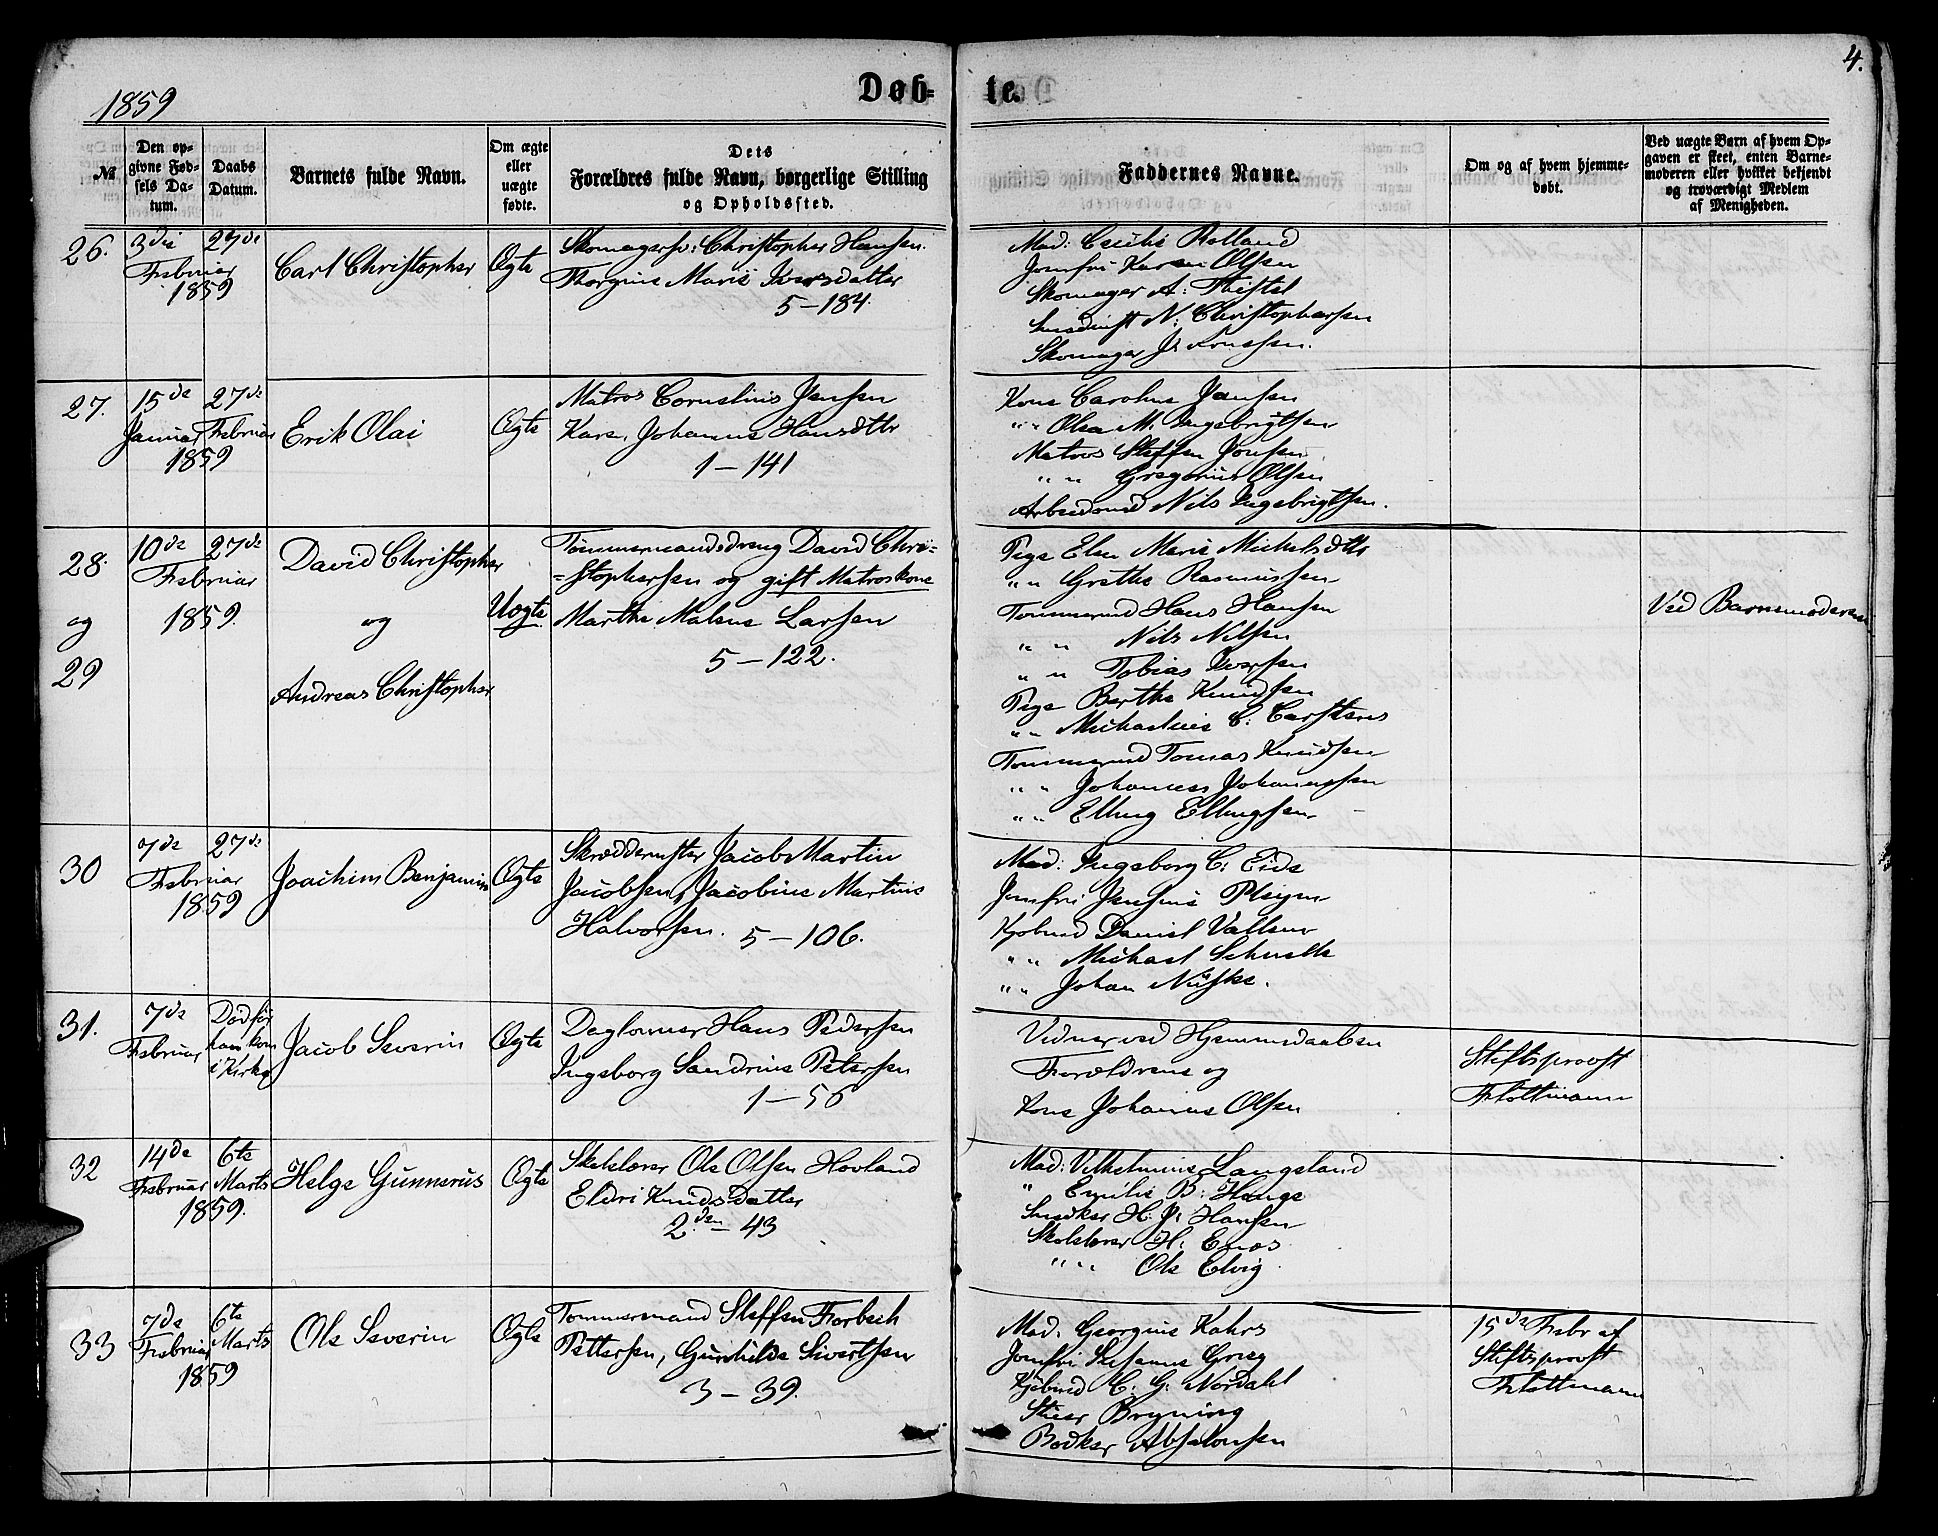 4.
1859
Døb-
te.
№
Den op-
givne Fød-
sels Da-
tum.
Daabs
Datum.
Barnets fulde Navn.
Om ægte
eller
uægte
fødte.
Dets
Forældres fulde Navn, borgerlige Stilling
og Opholdssted.
Faddernes Navne.
Om og af hvem hjemme-
døbt.
Ved uægte Børn af hvem Op-
gaven er skeet, enten Barne-
moderen eller hvilket bekjendt
og troværdigt Medlem
af Menigheden.
26.
3die
Februar
1859
27de
Carl Christopher
Ægte
Skomagersv: Christopher Hansen.
Thorgine Marie Iversdatter
5-184.
Mad: Cecilie Rolland
Jomfru Karen Olsen
Skomager A: Thistel
N: Christophersen
Skomager J:
27.
15de
Januar
1859
27de
Februar
Erik Olai
Ægte
Matros Cornelius Jensen
Karen Johanne Hansdtr
1-141
Kone Caroline Jansen
"" Olea M. Ingebrigtsen
Matros Steffen Jonsen
"" Gregorius Olsen
Arbeidsmd Nils Ingebrigtsen.
28.
og
29
10de
Februar
1859.
27de
David Christopher
og
Andreas Christopher
Uægte
Tømmermandsdreng David Chri-
=stophersen og gift Matroskone
Marthe Malene Larsen
5-122.
Pige Elen Marie Michelsdtr
"" Grethe Rasmussen
Tømmermd Hans Hansen
"" Nils Nilsen
"" Tobias Iversen
Pige Berthe Knudsen
"" Michaeline C: Carstens
Tømmermd Tomas Knudsen
"" Johannes Johannessen
"" Elling Ellingsen
Ved Barnemoderen
30
7de
Februar
1859
27de
Joachim Benjamin
Ægte
Skræddermster Jacob Martin
Jacobsen, Jacobine Martine
Halvorsen. 5-106.
Mad: Ingeborg C: Eide
Jomfru Jensine
Kjøbmd Daniel
"" Michael
"" Johan
31.
7de
Februar
Død før
han kom
i Kirke
Jacob Severin
Ægte
Daglønner Hans Pedersen
Ingeborg Sandrine Petersen
1-56
Vidner ved Hjemmedaaben
Forældrene og
Kone Johanne Olsen
Stiftsprovst
Flottmann
32
14de
Februar
1859.
6te
Marts
Helge Gunnerus
Ægte
Skolelærer Ole Olsen Hovland
Eldri Knudsdatter
2den 43
Mad: Vilhelmine Langeland
" Emilie B: Hauge
Snedker H: J: Hansen
Skolelærer H: Enæs
"" Ole Elvig
33
7de
Februar
1859
6te
Marts
Ole Severin
Ægte
Tømmermand Steffen Forbech
Pettersen, Gunhilde Sivertsen
3-39.
Mad. Georgine Kahrs
Jomfru Stefanne Grieg
Kjøbmd C: G: Nordahl
Bryning
Bødker Absalonsen
15de Febr af
Stiftsprovst
Flottmann